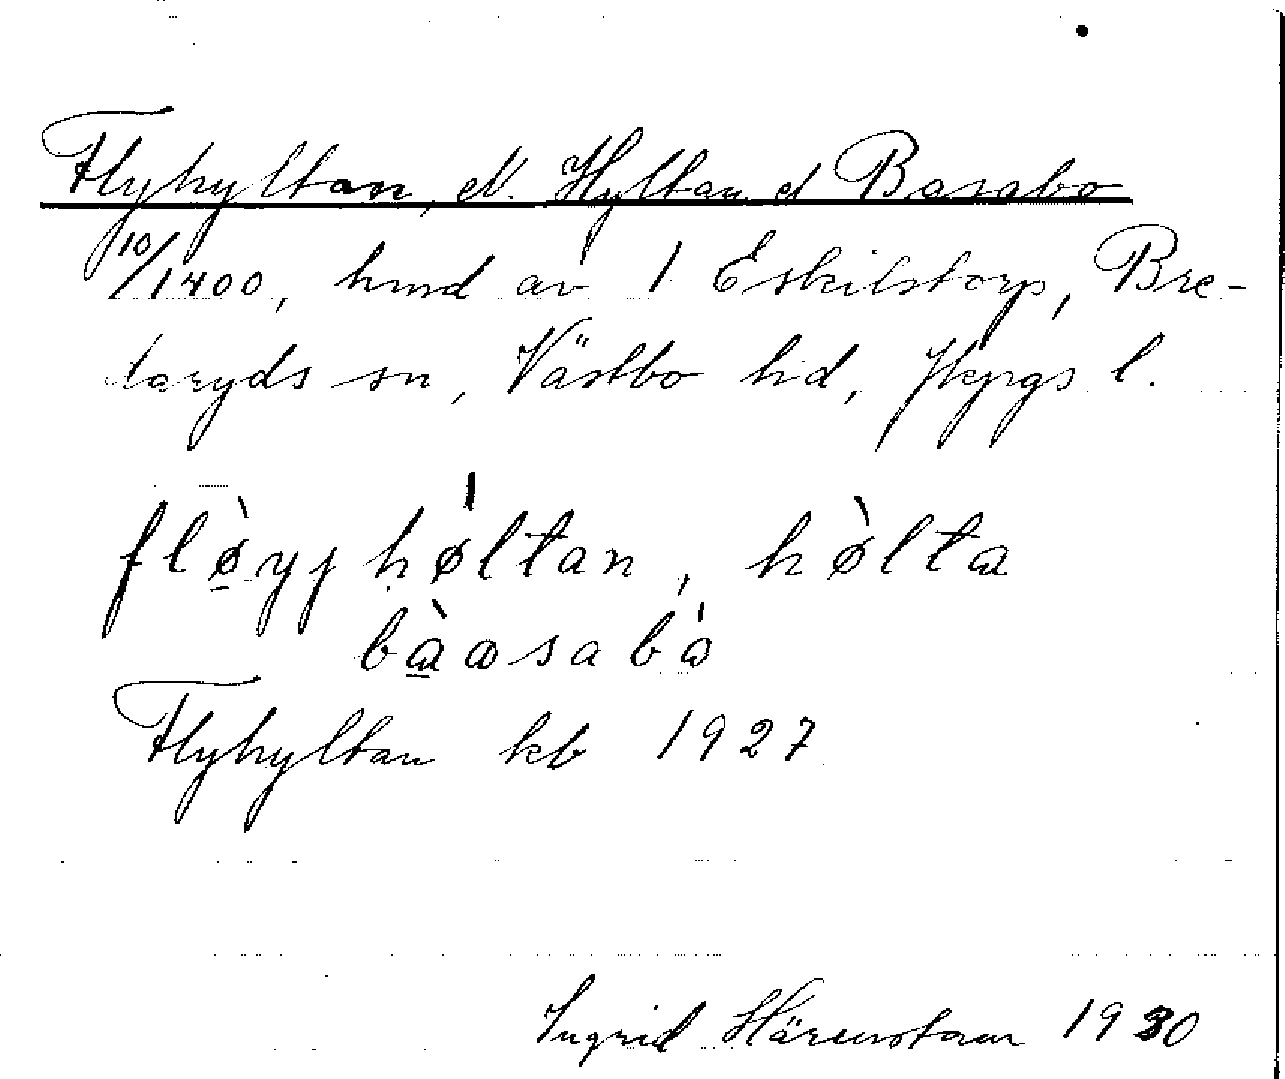 Flyhyltan, el. Hyltan el Basabo
10/1400, hmd av 1 Eskilstorp, Bre-
taryds sn, Västbo hd, Jkpgs l.
fløyj høltan, hølta
baosabo
Flyhyltan kb 1927
Ingrid Härenstam 1930